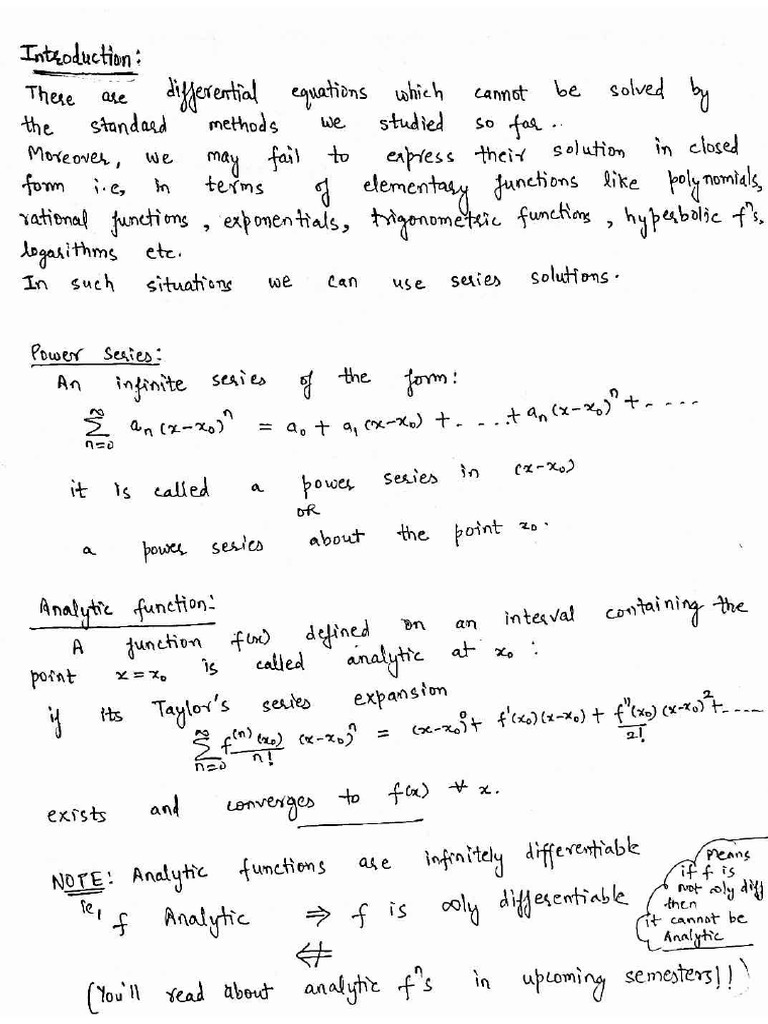 Introduction:
There are differential equations which cannot be solved by
the standard methods we studied so far..
Moreover, we may fail to express their solution in closed
form i.e, in terms of elementary functions like polynomials,
rational functions, exponentials, trigonometric functions, hyperbolic fⁿs,
logarithms etc.
In such situations we can use series solutions.
Power Series:
An infinite series of the form:
∑_{n=0}^{∞} aₙ(x-x₀)ⁿ = a₀ + a₁(x-x₀) + .....+ aₙ(x-x₀)ⁿ + .....
it is called a power series in (x-x₀)
OR
a power series about the point x₀.
Analytic function:
A function f(x) defined on an interval containing the
point x=x₀ is called analytic at x₀ :
if its Taylor's series expansion
∑_{n=0}^{∞} f⁽ⁿ⁾(x₀)/n! (x-x₀)ⁿ = (x-x₀)⁰ + f'(x₀)(x-x₀) + f''(x₀)/2! (x-x₀)² + .....
exists and converges to f(x) ∀ x.
NOTE: Analytic functions are infinitely differentiable
ie, f Analytic ⇒ f is ∞ly differentiable
⇍
(You'll read about analytic fⁿs in upcoming semesters!!)
Means
if f is
not ∞ly diff
then
it cannot be
Analytic